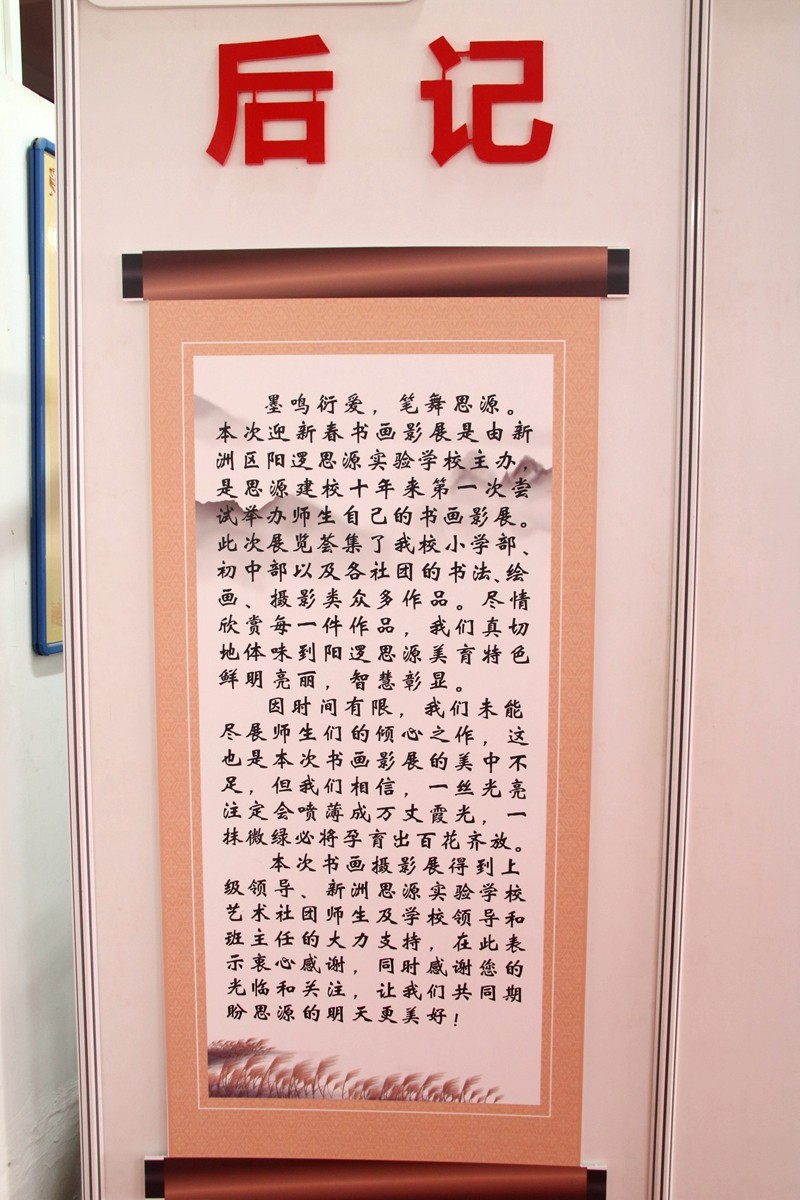 后记
墨鸣衍爱，笔舞思源。
本次迎新春书画影展是由新
洲区阳逻思源实验学校主办，
是思源建校十年来第一次尝
试举办师生自己的书画影展。
此次展览荟集了我校小学部、
初中部以及各社团的书法、绘
画、摄影类众多作品。尽情
欣赏每一件作品，我们真切
地体味到阳逻思源美育特色
鲜明亮丽，智慧彰显。
因时间有限，我们未能
尽展师生们的倾心之作，这
也是本次书画影展的美中不
足，但我们相信，一丝光亮
注定会喷薄成万丈霞光，一
抹微绿必将孕育出百花齐放。
本次书画摄影展得到上
级领导、新洲思源实验学校
艺术社团师生及学校领导和
班主任的大力支持，在此表
示衷心感谢，同时感谢您的
光临和关注，让我们共同期
盼思源的明天更美好！